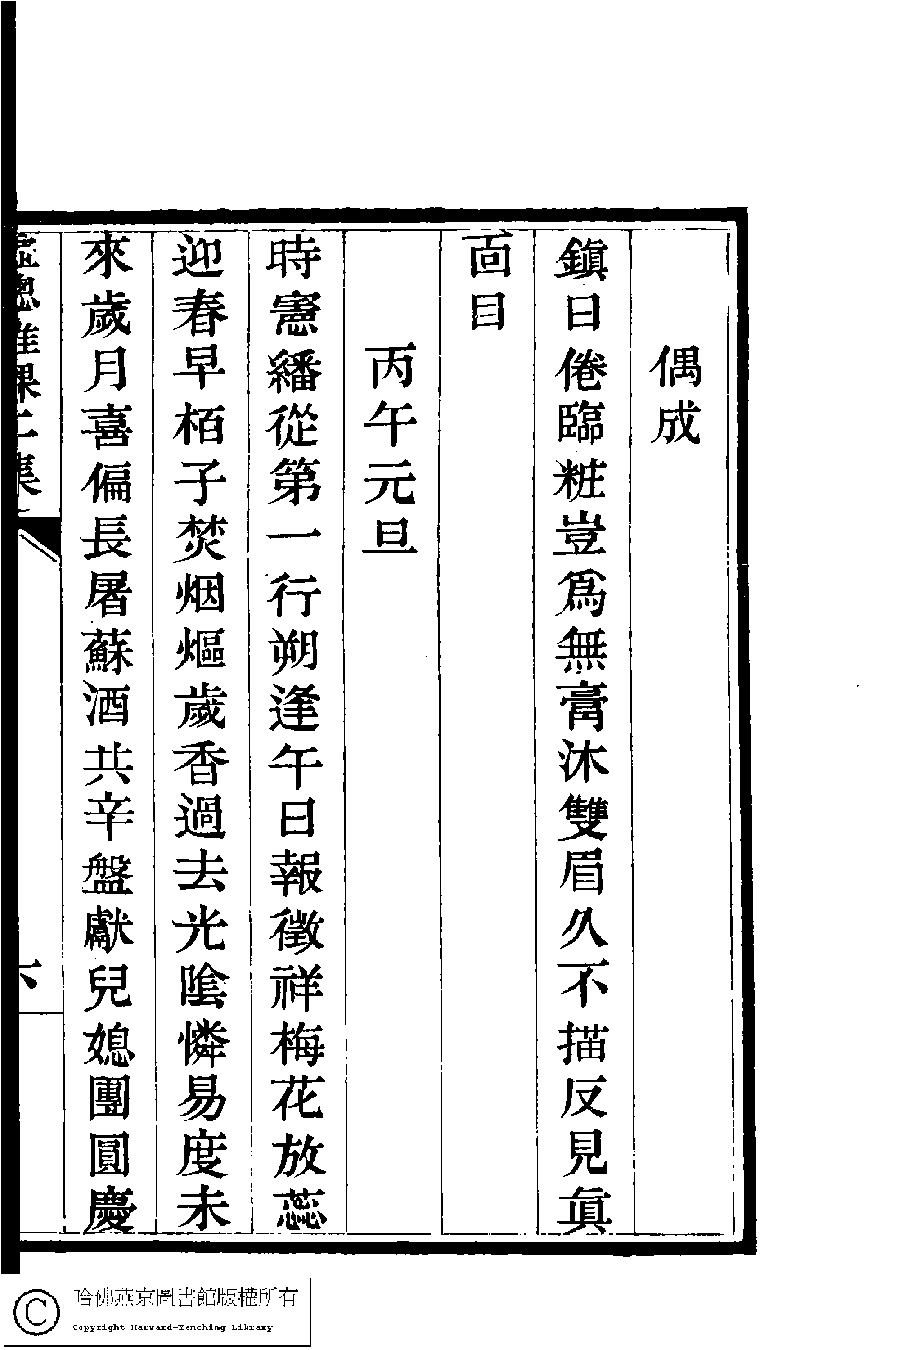 偶成
鎮日倦臨粧豈爲無膏沐雙眉久不描反見眞
面目
丙午元旦
時憲繙從第一行朔逢午日報徵祥梅花放蕊
迎春早栢子焚烟熰歲香過去光陰憐易度未
來歲月喜偏長屠蘇酒共辛盤獻兒媳團圓慶
二集
六
哈佛燕京圖書館版權所有
Copyright Harvard-Yenching Library